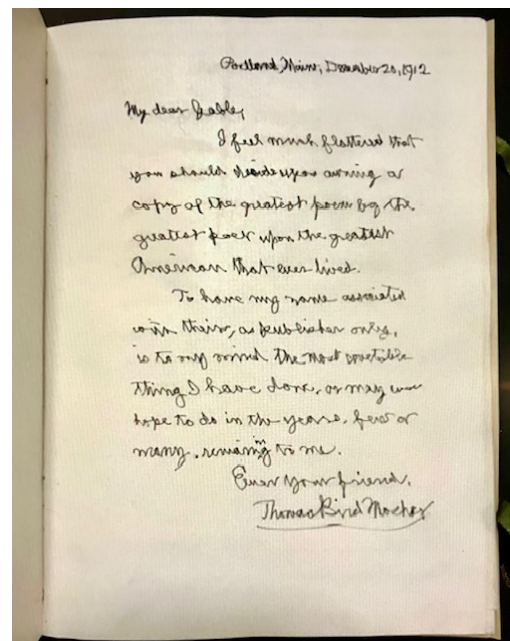 Portland, Maine, December 20, 1912
My dear
I feel much flattered that
you should decide upon owning a
copy of the greatest poem by the
greatest poet upon the greatest
American that ever lived.
To have my name associated
with theirs, as publisher only,
is to my mind the most
thing I have done, or may ever
hope to do in the years, few or
many, remaining to me.
Ever your friend,
Thomas Bird Mosher